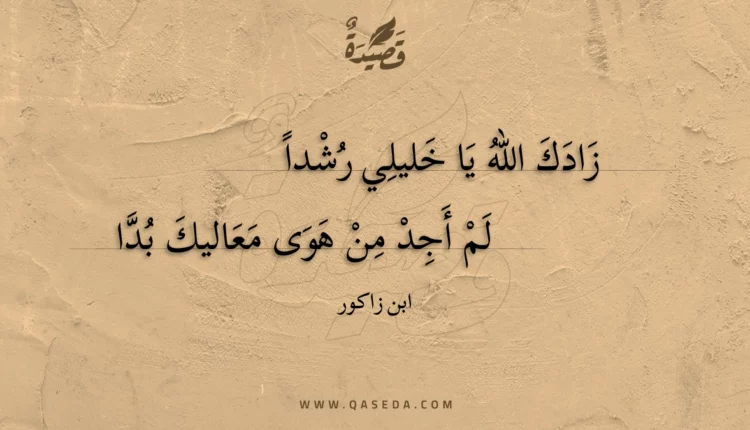 قَصِيْدَةٌ
زَادَكَ اللهُ يَا خَليلِي رُشْداً
لَمْ أَجِدْ مِنْ هَوَى مَعَاليكَ بُدَّا
ابن زاكور
WWW.QASEDA.COM